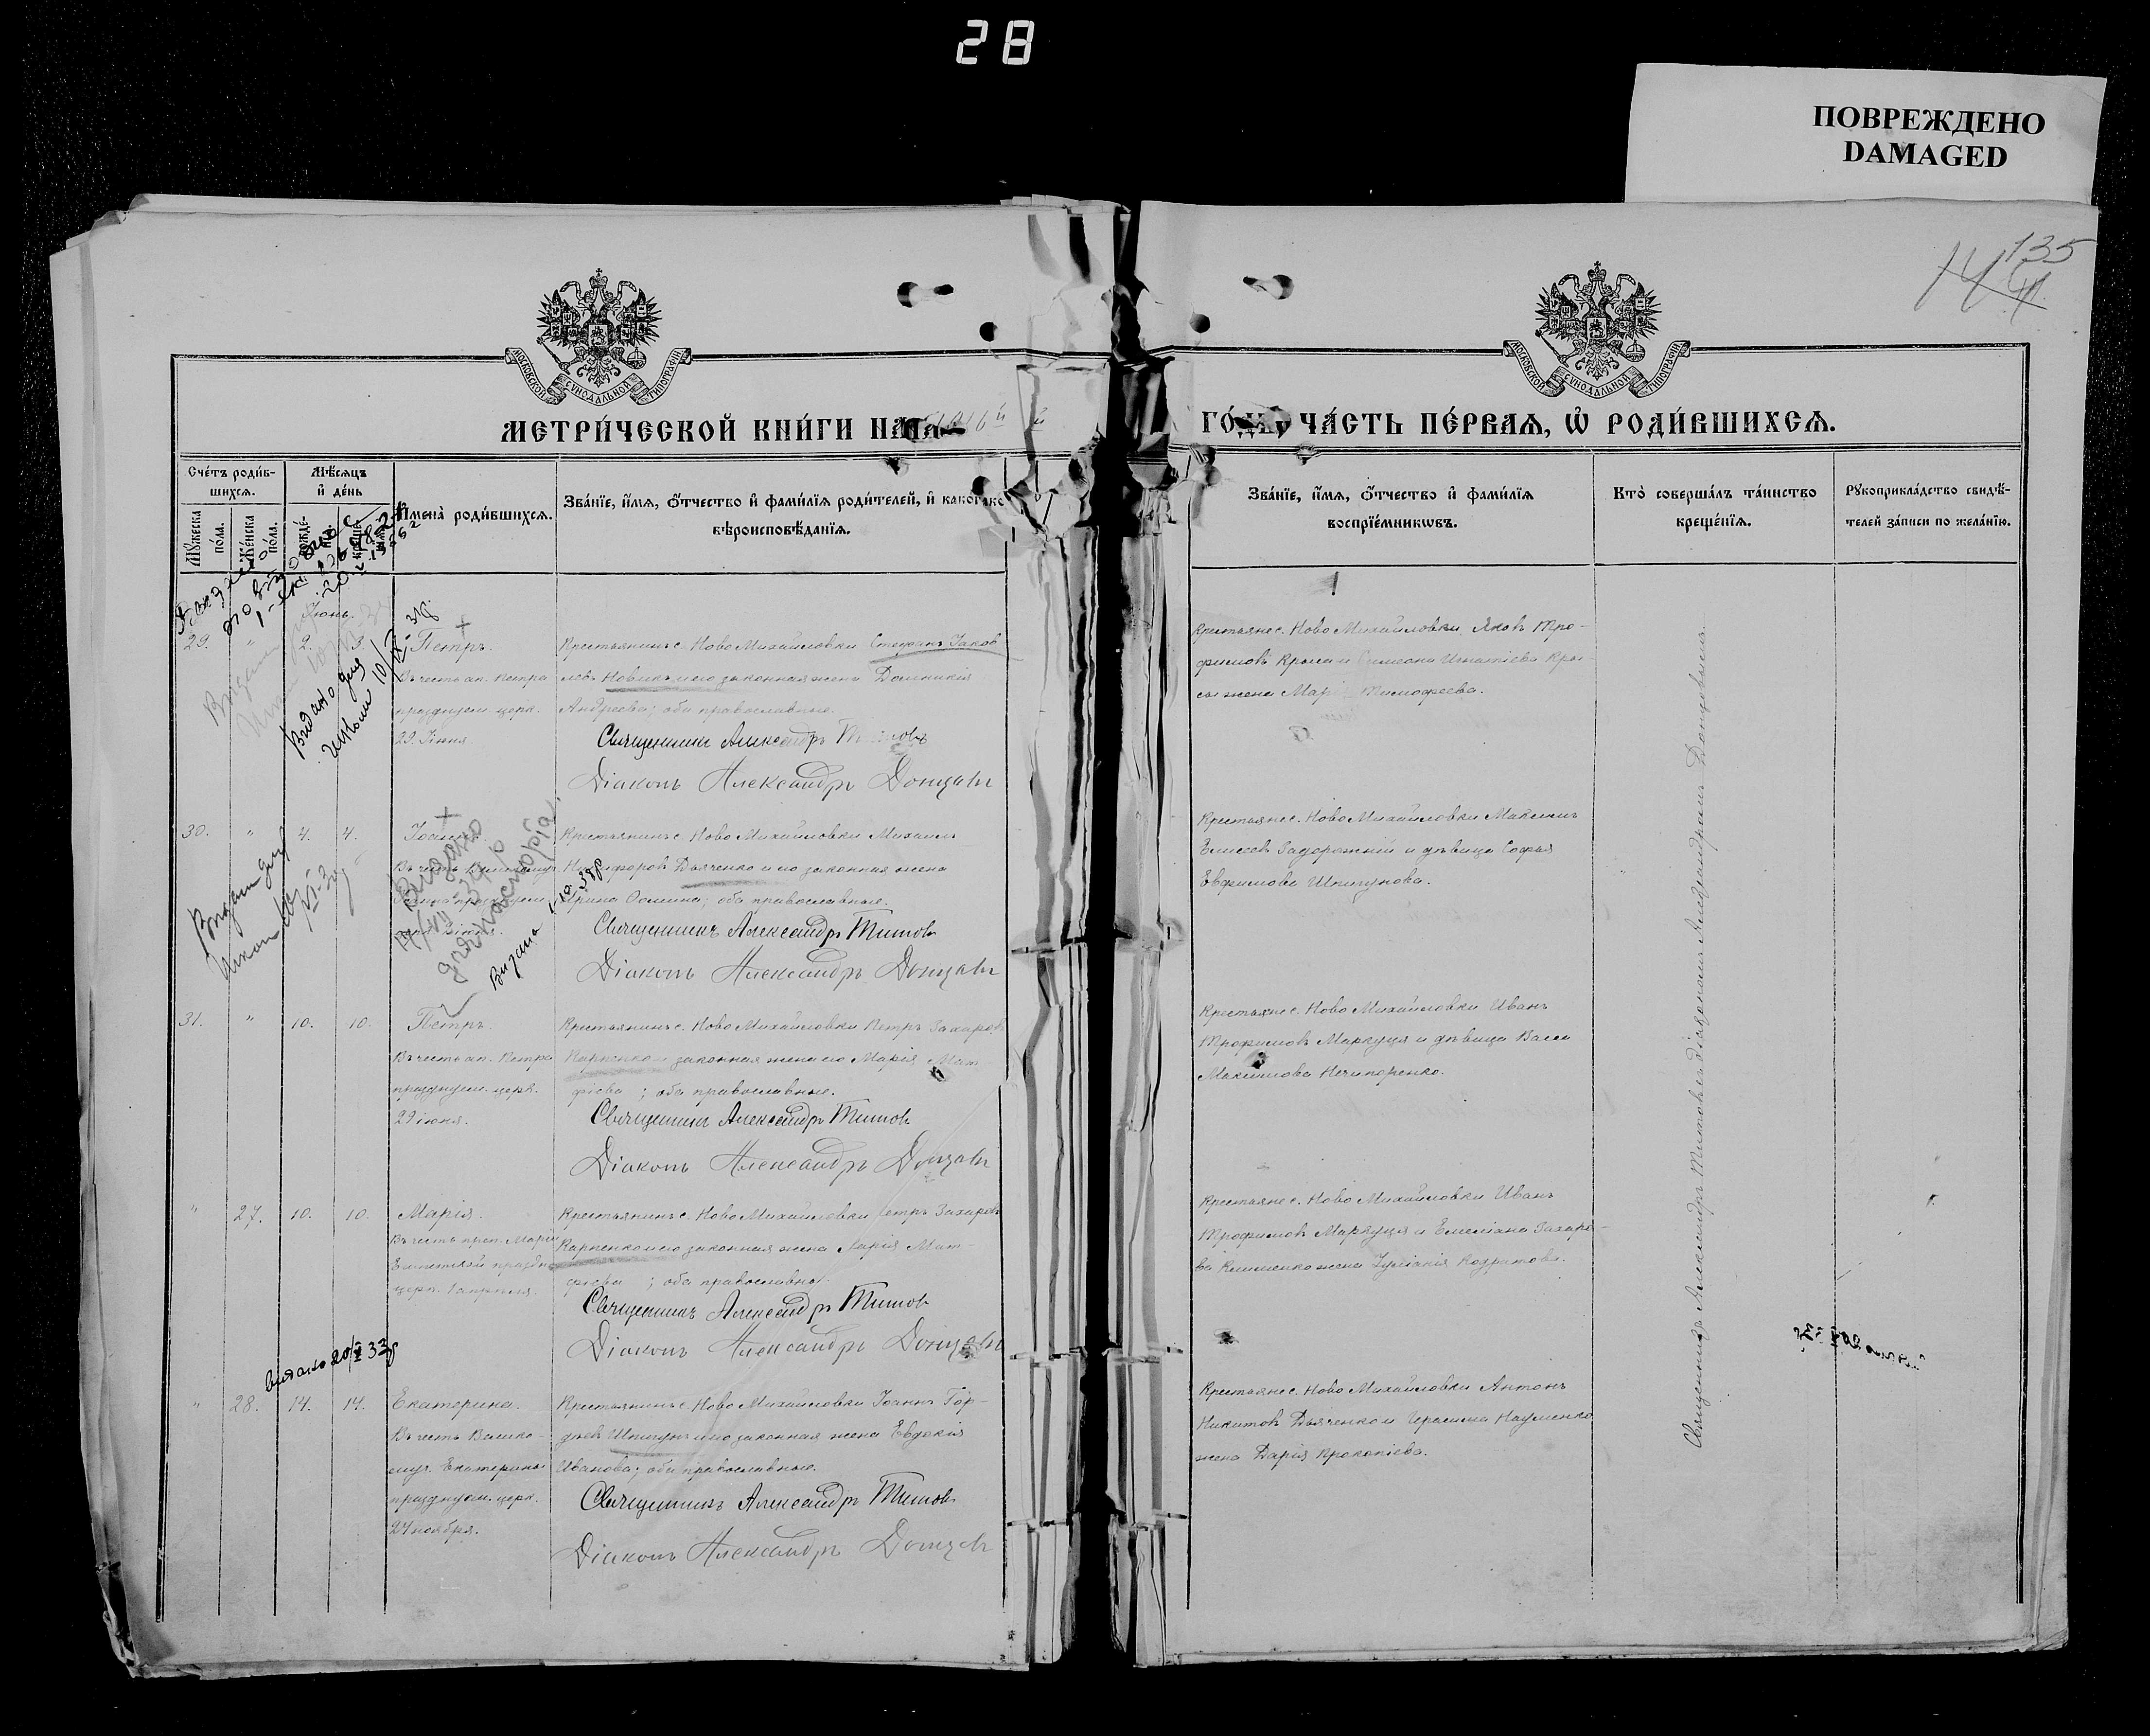 28
ПОВРЕЖДЕНО
DAMAGED
135
МОСКОВСКОЙ СѴНОДАЛЬНОЙ ТИПОГРАФІИ
МОСКОВСКОЙ СѴНОДАЛЬНОЙ ТИПОГРАФІИ
МЕТРИ́ЧЕСКОЙ КНИ́ГИ НА
ЧА́СТЬ ПЕ́РВАЯ, Ѡ҆ РОДИ́ВШИХСЯ.
Сче́тъ роди́в-
шихся.
Мѣ́сяцъ
и҆ де́нь
И҆мена̀ роди́вшихся.
Зва́нїе, и҆́мя, ѻ҆́тчество и҆ фами́лїя роди́телей, и҆ како́гѡ
вѣроисповѣ́данїя.
Мꙋ́жеска
по́ла.
Же́нска
по́ла.
Зва́нїе, и҆́мя, ѻ҆́тчество и҆ фами́лїя
воспрїе́мникѡвъ.
Кто̀ соверша́лъ та́инство
креще́нїя.
Рꙋкоприкла́дство свидѣ́-
телей за́писи по жела́нїю.
Іюнь.
29. " 2. 3. Петръ.
Въ честь ап. Петра
празднуем. церк.
29. Іюня
Крестьянинъ с. Ново Михайловки Стефанъ Іаков
левъ Новикъ и его законная жена Домникія
Андреева; оба православные.
Священникъ Александръ
Діаконъ Александръ Донцовъ
Крестьяне с. Ново Михайловки Яковъ Тро-
фимовъ Крыса и Симеона Игнатіева Кры-
сы жена Тимофеева.
Видано
30. " 4. 4. Іоаннъ.
Крестьянинъ с. Ново Михайловки Михаилъ
Никифоровъ Дьяченко и его законная жена
Ирина; оба православные.
Священникъ Александръ Титовъ
Діаконъ Александръ Донцовъ
Крестьяне с. Ново Михайловки Максимъ
Елисеевъ Задорожній и дѣвица Софья
Евфимова Шпигунова.
Видано
31. " 10. 10. Петръ.
Въ честь ап. Петра
празднуем. церк.
29 іюня.
Крестьянинъ с. Ново Михайловки Петръ Захаровъ
Карпенко и законная жена его Марія Мат
фіева; оба православные.
Священникъ Александръ Титовъ
Діаконъ Александръ Донцовъ
Крестьяне с. Ново Михайловки Иванъ
Трофимовъ Маркуця и дѣвица Васса
Максимова Нечипоренко.
" 27. 10. 10. Марія.
Въ честь преп. Маріи
Египетской праздн.
церк. 1 апреля.
Крестьянинъ с. Ново Михайловки Петръ Захаровъ
Карпенко и его законная жена Марія Мат
фіева; оба православные.
Священникъ Александръ Титовъ
Діаконъ Александръ Донцовъ
Крестьяне с. Ново Михайловки Иванъ
Трофимовъ Маркуця и Емеліана Захаро-
ва Клименко жена Іуліанія
видано
" 28. 14. 14. Екатерина.
Въ честь Велико-
муч. Екатерины
празднуем. церк.
24 ноября.
Крестьянинъ с. Ново Михайловки Іоаннъ Гор-
дѣевъ Шпигунъ и его законная жена Евдокія
Иванова; оба православные.
Священникъ Александръ Титовъ
Діаконъ Александръ Донцовъ
Крестьяне с. Ново Михайловки Антонъ
Никитовъ Дьяченко и Герасима Науменко
жена Дарія Прокопіева.
Священникъ Александръ Титовъ съ діакономъ Александромъ Донцовымъ.